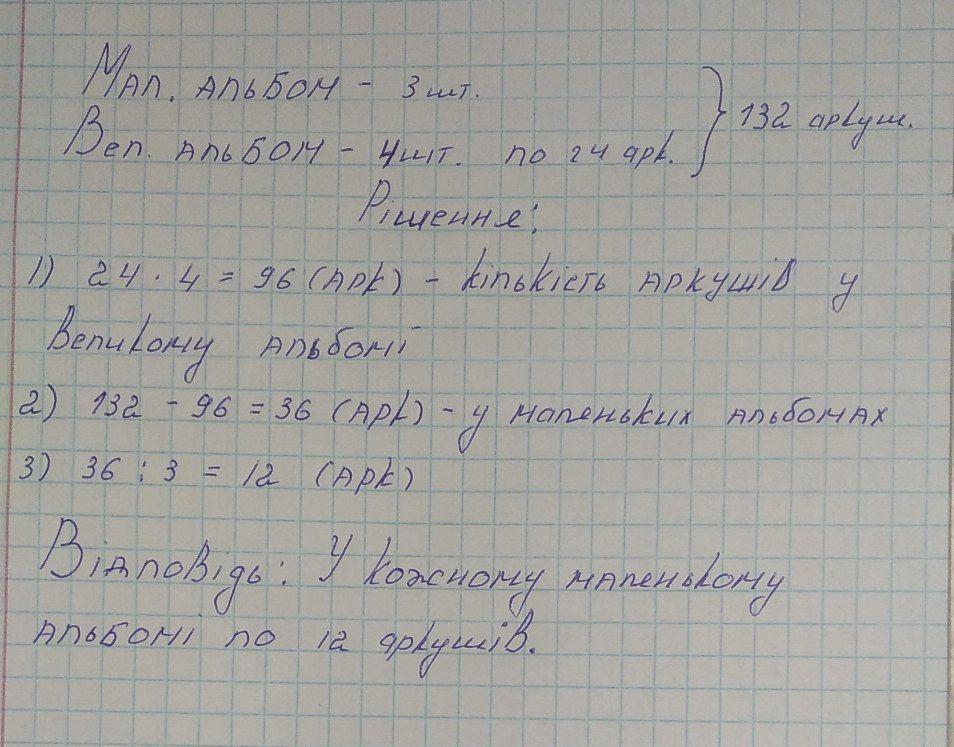 Мал. альбом - 3 шт.
Вел. альбом - 4 шт. по 24 арк. } 132 аркуш.
Рішення:
1) 24 · 4 = 96 (арк) - кількість аркушів у
великому альбомі
2) 132 - 96 = 36 (арк) - у маленьких альбомах
3) 36 : 3 = 12 (арк)
Відповідь: У кожному маленькому
альбомі по 12 аркушів.